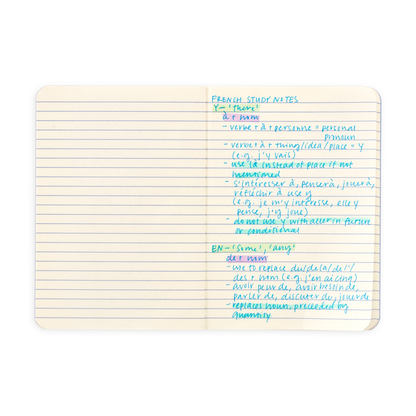 FRENCH STUDY NOTES
Y - 'there'
à + nom
- verbe + à + personne = personal
pronoun
- verbe + à + thing/idea/place = Y
(e.g. j'y vais)
- use là instead of place if not
mentioned
- s'intéresser à, penser à, jouer à,
réfléchir à use y
(e.g. je m'y intéresse, elle y
pense, j'y joue)
- do not use y with aller in future
or conditional
EN - 'some', 'any'
de + nom
- use to replace du/de la/de l'/
des + nom (e.g. j'en ai cinq)
- avoir peur de, avoir besoin de,
parler de, discuter de, jouer de
- replaces noun, preceded by
quantity